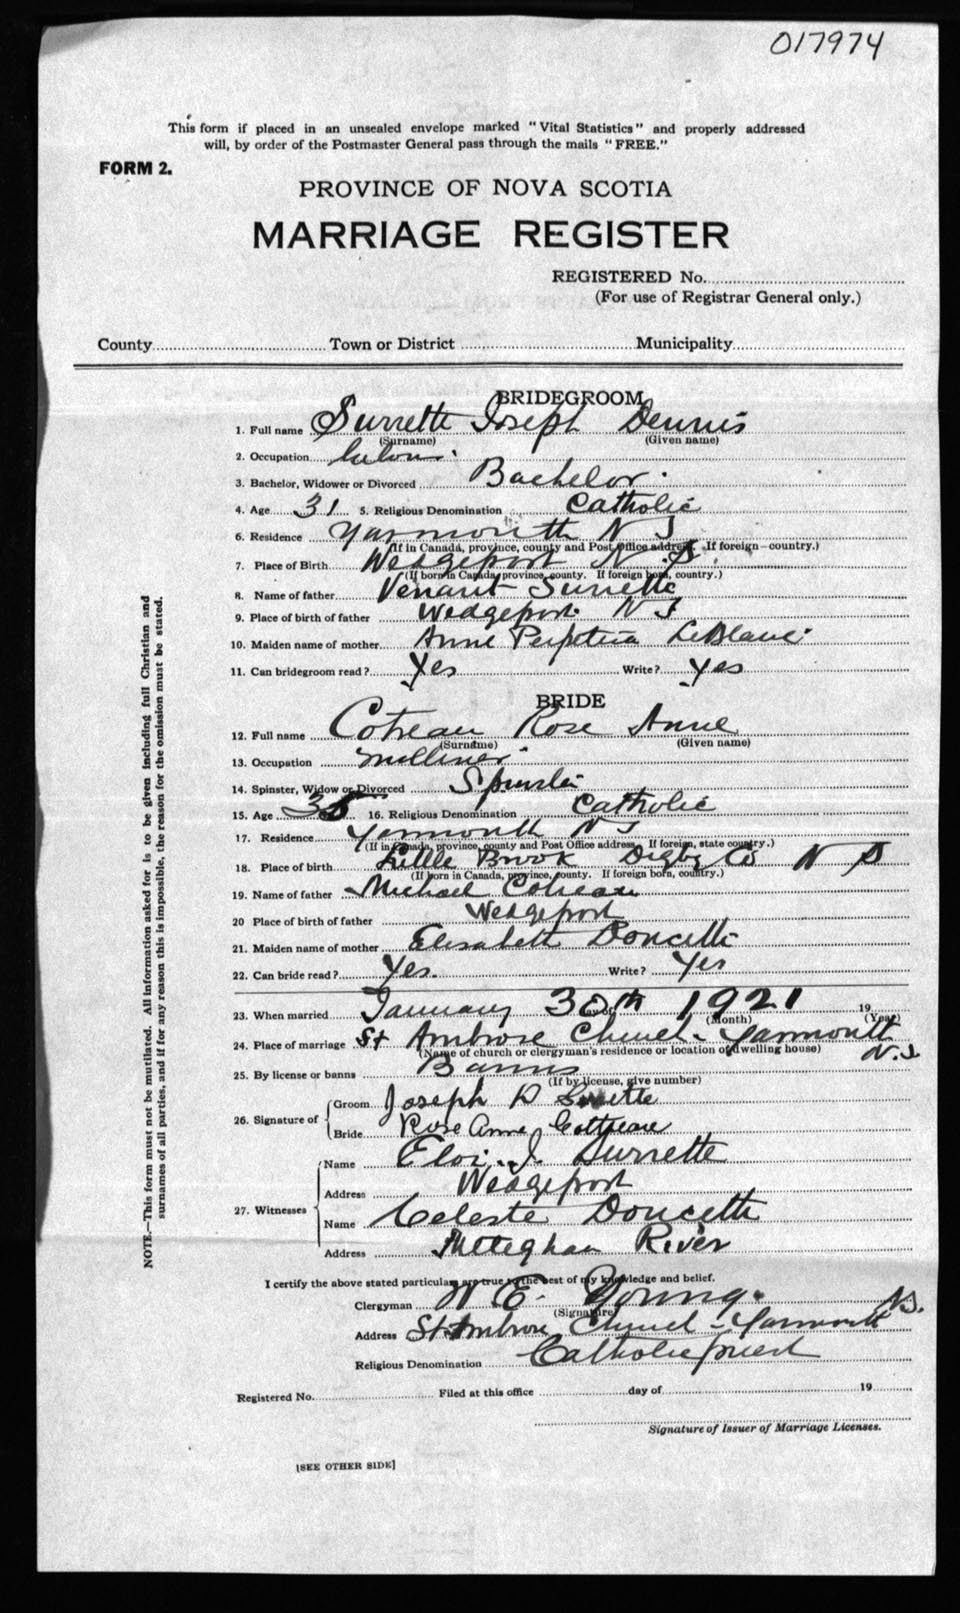 017974
This form if placed in an unsealed envelope marked "Vital Statistics" and properly addressed
will, by order of the Postmaster General pass through the mails "FREE."
FORM 2.
PROVINCE OF NOVA SCOTIA
MARRIAGE REGISTER
REGISTERED No.
(For use of Registrar General only.)
County Town or District Municipality
BRIDEGROOM
1. Full name Surrette Joseph Dennis
(Surname) (Given name)
2. Occupation
3. Bachelor, Widower or Divorced Bachelor
4. Age 31 5. Religious Denomination Catholic
6. Residence Yarmouth N S
(If in Canada, province, county and Post Office address. If foreign—country.)
7. Place of Birth Wedgeport N. S.
(If born in Canada, province, county. If foreign born, country.)
8. Name of father Venant Surrette
9. Place of birth of father Wedgeport N S
10. Maiden name of mother Anne Perpetua LeBlanc
11. Can bridegroom read? Yes Write? Yes
BRIDE
12. Full name Cotreau Rose Anne
(Surname) (Given name)
13. Occupation milliner
14. Spinster, Widow or Divorced Spinster
15. Age 35 16. Religious Denomination Catholic
17. Residence Yarmouth N S
(If in Canada, province, county and Post Office address. If foreign, state country.)
18. Place of birth Little Brook Digby Co N S
(If born in Canada, province, county. If foreign born, country.)
19. Name of father Michael Cotreau
20 Place of birth of father Wedgeport
21. Maiden name of mother Elisabeth Doucette
22. Can bride read? Yes. Write? Yes
23. When married January 30th 1921 19
(Month) (Year)
24. Place of marriage St Ambrose Church - Yarmouth N.S.
(Name of church or clergyman's residence or location of dwelling house)
25. By license or banns Banns
(If by license, give number)
26. Signature of Groom Joseph D Surette
Bride Rose Anne Cottreau
27. Witnesses Name Eloi. J. Surrette
Address Wedgeport
Name Celeste Doucette
Address Meteghan River
I certify the above stated particulars are true to the best of my knowledge and belief.
Clergyman W E. Young.
(Signature)
Address St Ambrose Church - Yarmouth N.S.
Religious Denomination Catholic priest
Registered No. Filed at this office day of 19
Signature of Issuer of Marriage Licenses.
[SEE OTHER SIDE]
NOTE.—This form must not be mutilated. All information asked for is to be given including full Christian and
surnames of all parties, and if for any reason this is impossible, the reason for the omission must be stated.